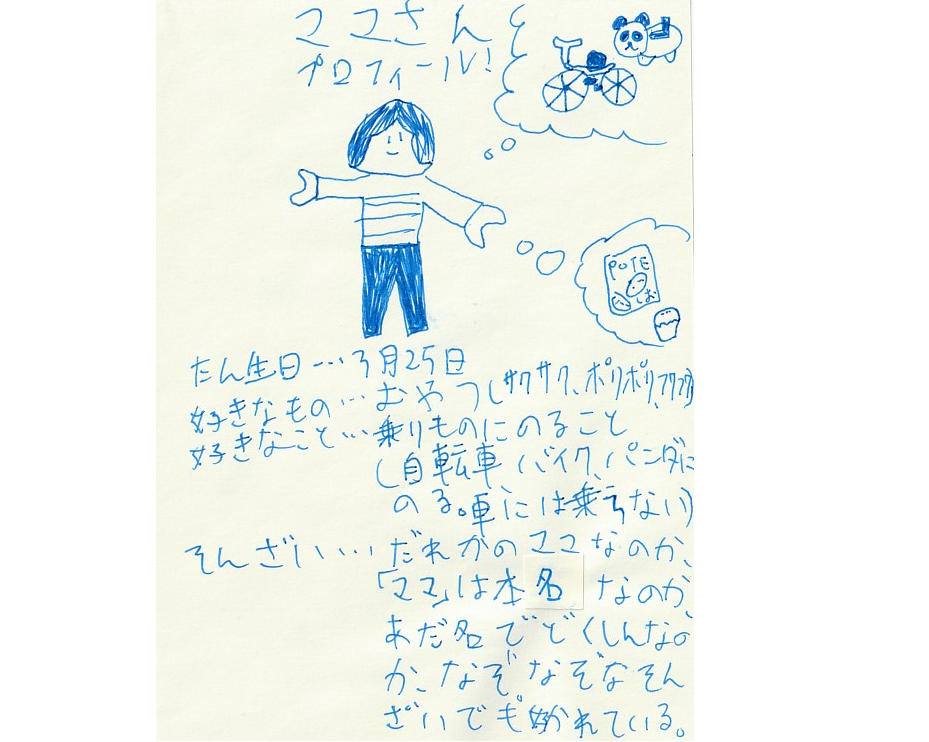 ママさん
プロフィール!
POTE
しお
たん生日…3月25日
好きなもの…おやつ(サクサク、ポリポリ、フワフワ)
好きなこと…乗りものにのること
(自転車 バイク、パンダに
のる。車には乗らない)
そんざい…だれかのママなのか、
「ママ」は本名なのか、
あだ名でどくしんなの
か、なぞなぞなそん
ざいでも好かれている。